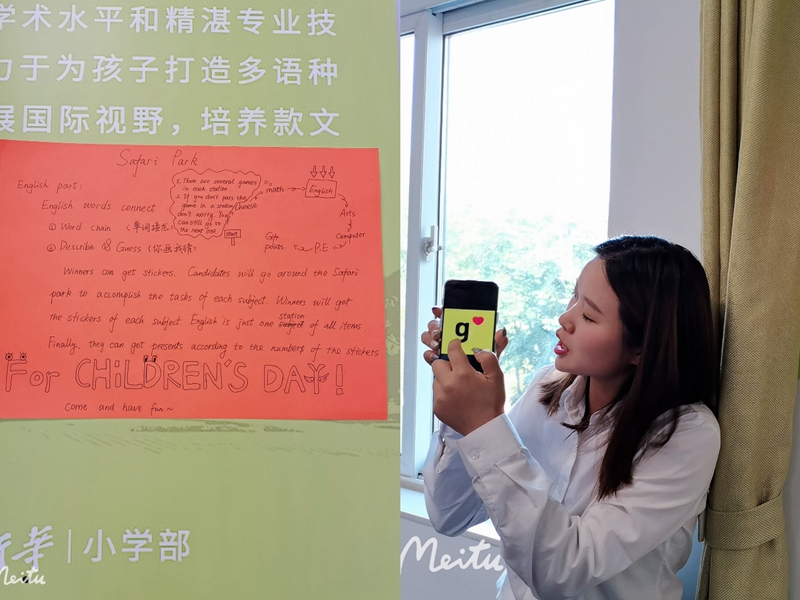 学术水平和精湛专业技
力于为孩子打造多语种
展国际视野，培养款文
Safari Park
English part:
English words connect
① Word chain （单词接龙）
② Describe & Guess （你画我猜）
1. There are several games
in each station
2. If you don't pass the
game in a station,
don't worry. You
can still go to
the next one
start
Chinese
math
English
Arts
Computer
P.E
Gift
points
Winners can get stickers. Candidates will go around the Safari
park to accomplish the tasks of each subject. Winners will get
the stickers of each subject. English is just one station of all items.
Finally, they can get presents according to the numbers of the stickers
For CHiLDREN'S DAY!
Come and have fun~
新华 | 小学部
Meitu
g
Meitu